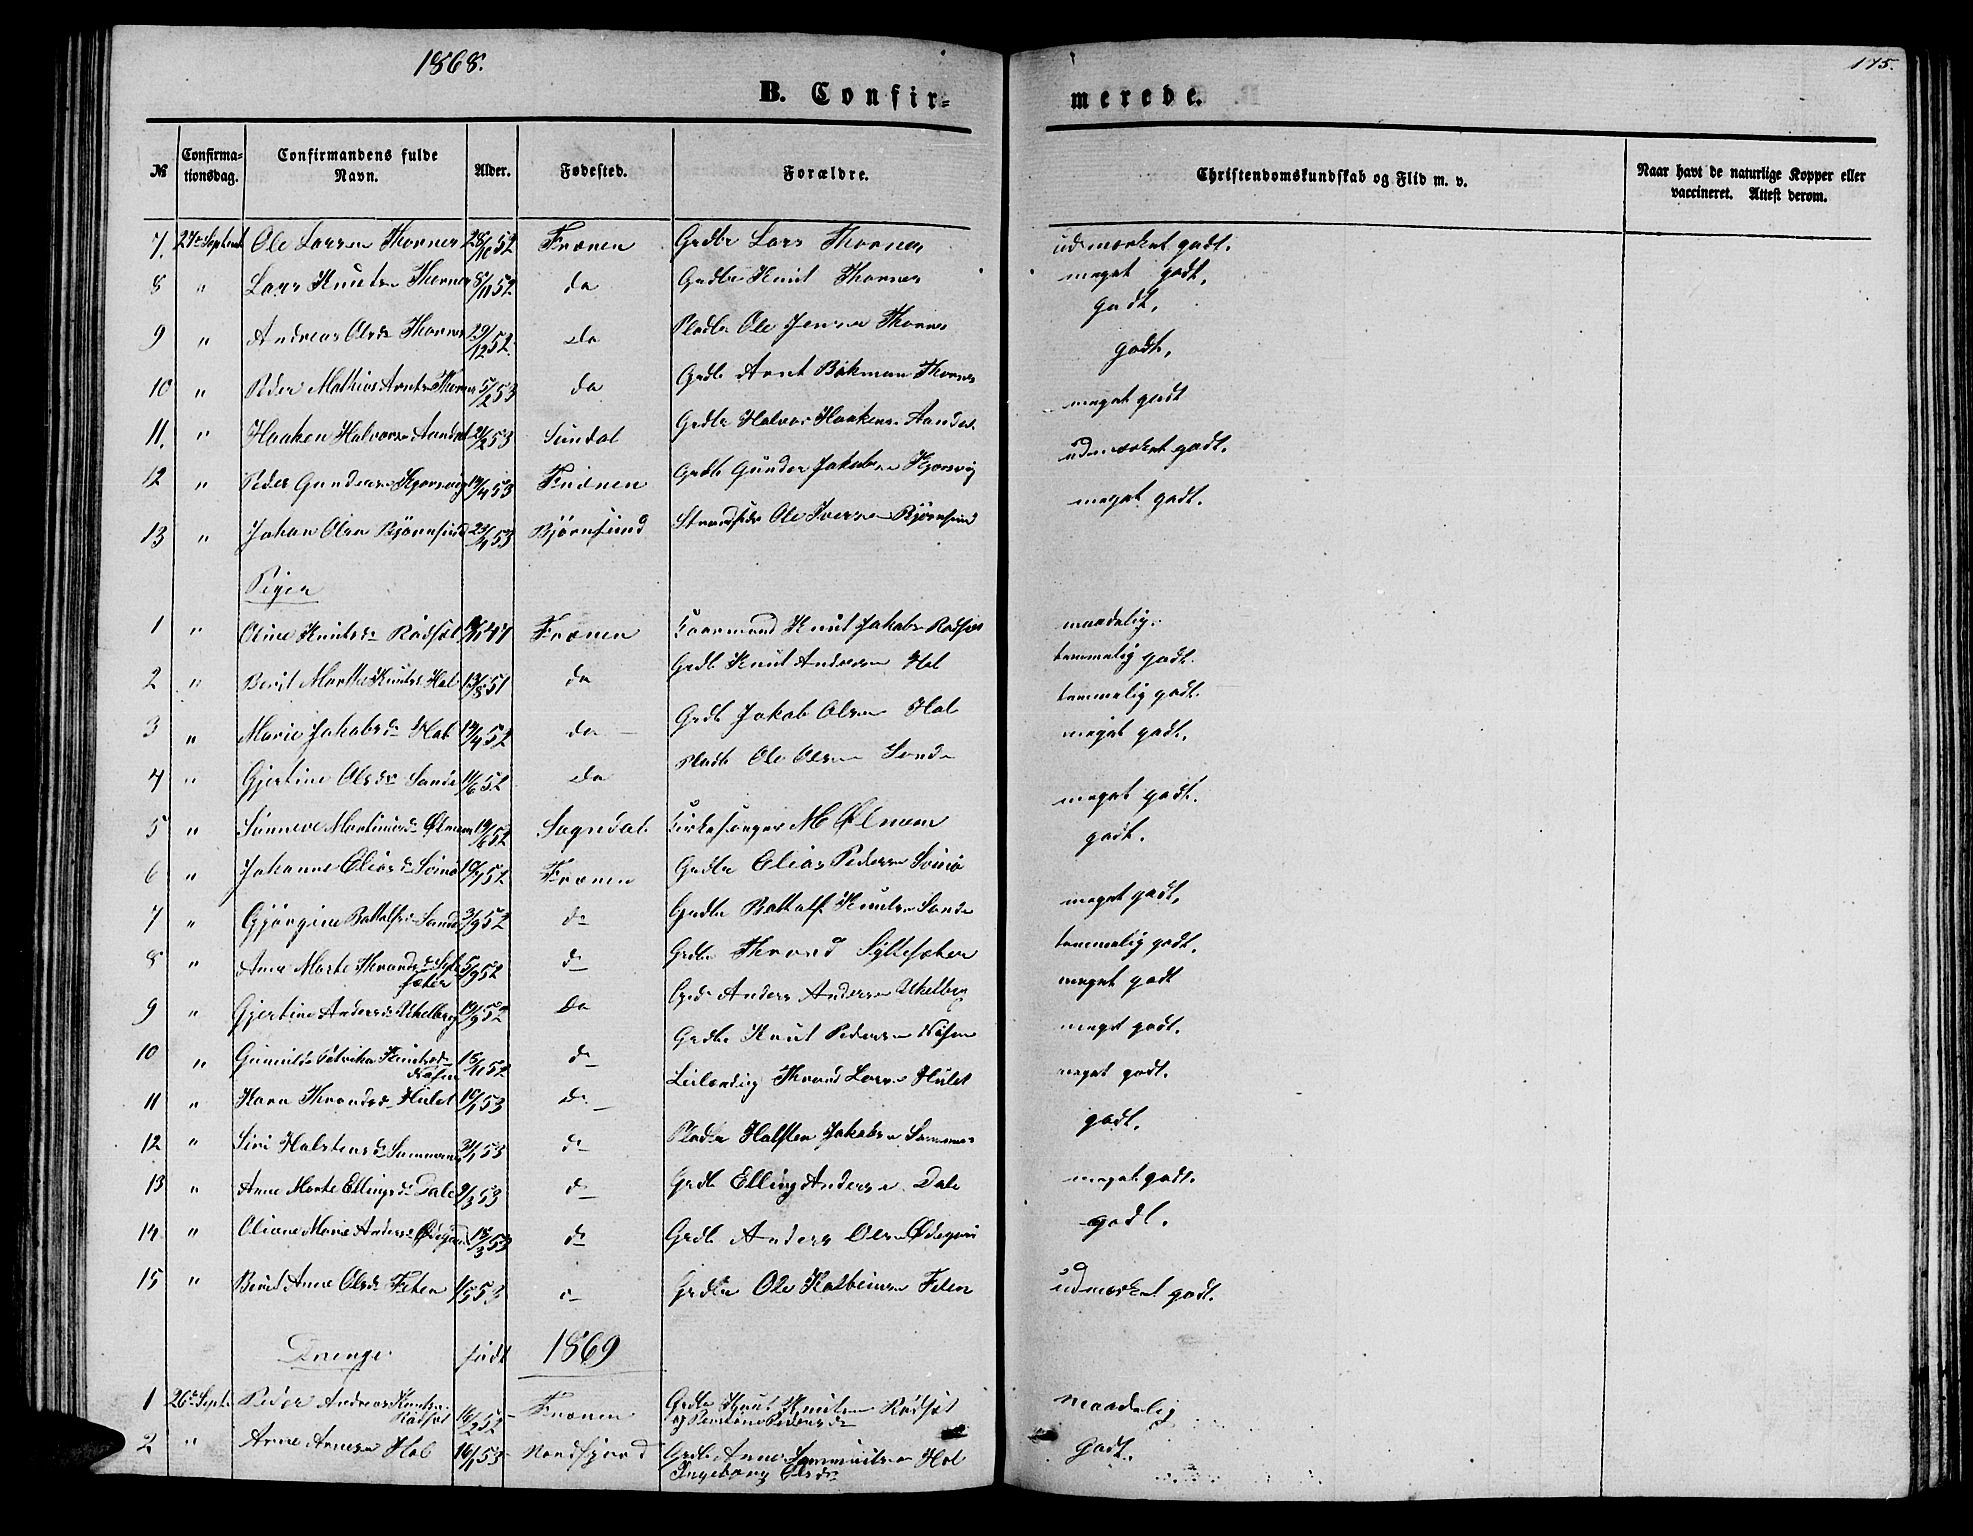 1868.
175.
B. Confir=
merede.
№
Confirma-
tionsdag.
Confirmandens fulde
Navn.
Alder.
Fødested.
Forældre.
Christendomskundskab og Flid m. v.
Naar havt de naturlige Kopper eller
vaccineret. Attest derom.
7. 27de Septembr Ole Larsen Thornes 28/10 52 Frænen Grdbr Lars Thornes udmærket godt.
8 " Lars Knutsen Thornes 8/11 52. do Grdbr Knut Thornes meget godt.
9 " Andreas Olsen Thornes 29/12 52. do Pladsr Ole Jensen Thornes godt.
godt.
10 " Peder Mathias Arntsen Thornes 5/2 53 do Grdb Arnt Bakman Thornes meget godt
11. " Haaken Halvorsen 21/2 53 Sundal Grdbr Halvor Haakens. udmærket godt.
12 " Peder Gundersen 19/4 53 Frænen Grdb Gunder Jakobsen meget godt.
13 " Johan Olsen Bjørnsund 23/4 53 Bjørnsund Ole Iversen Bjørnsund
Piger
1 " Oline Knutsdr Rødsæt 47 Frænen Knut Jakobsen Rødsæt maadelig.
2 " Berit Marthe Knutsdr Hol 13/8 51 do Grdb Knut Andersen Hol temmelig godt.
3 " Marie Jakobsdr Hol 19/4 52 do Grdb Jakob Olsen Hol temmelig godt.
meget godt.
4 " Gjertine Olsdr Sande 11/6 52 do Pladsr Ole Olsen Sande
meget godt.
5 " Sunneve Martinusdr Ølnem 19/6 52 Sogndal Kirkesanger M Ølnem godt.
6 " Johanne Eliasdr 19/7 52 Frænen Grdbr Elias Pedersen
meget godt.
7 " Gjørgine Sande 3/9 52 do Grdbr Knutsen Sande
8 " Ane Marte Throndsdr Sylte
sæter 5/9 52 do Grdbr Thrond Syltesæter temmelig godt.
9 " Gjertine Andersdr Uhelberg 19/9 52 do Grdb Anders Andersen Uhelberg meget godt
10 " Gunnild Knutsdr
Nøsen 15/11 52 do Grdbr Knut Pedersen Nøsen meget godt.
11 " Throndsdr Hulet 10/1 53 do Leilending Thrond Larsen Hulet meget godt.
12 " Siri Halstensdr 31/1 53 do Pladsr Halsten Jakobsen godt.
13 " Anne Marte Ellingsdr Dale 9/3 53 do Grdb Elling Andersen Dale meget godt.
14 " Oliane Marie Andersdr Ødegaard 18/3 53 do Grdb Anders Olsen Ødegaard godt.
15 " Berit Anne Olsdr Feten 1/5 53 do Grdbr Ole Kolbeinsen Feten udmærket godt.
Drenge født 1869
1 26de Septr Peder Andreas Knutsen
Rødsæt 16/2 52 Frænen Grdbr Knut Knutsen Rødsæt
maadelig
2 " Arne Arnesen Hol 16/1 53 Nordfjord Grdb Arne Hol
Ingeborg Olsdr
godt.